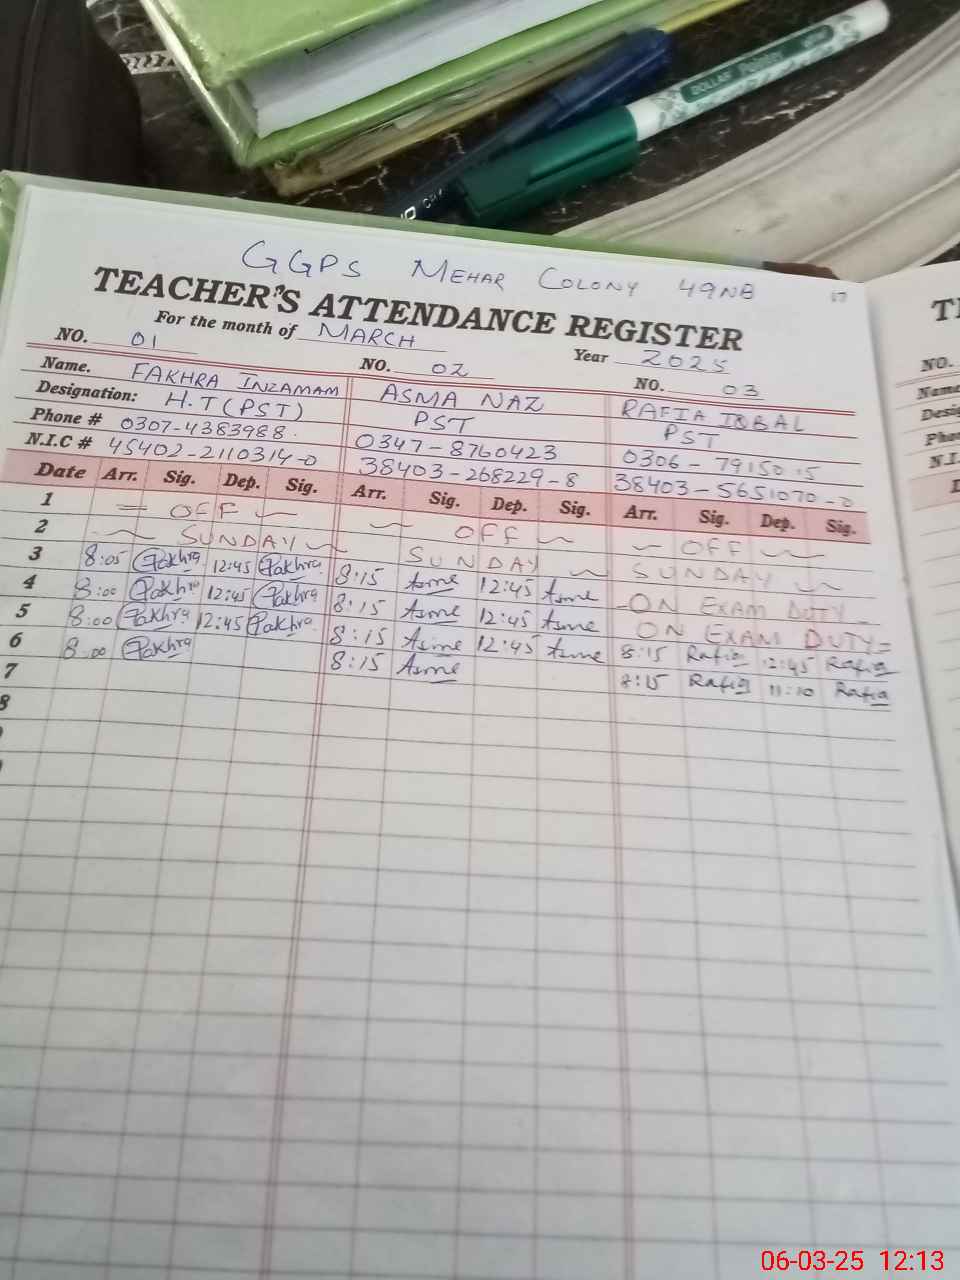 DOLLAR Pointer
GGPS MEHAR COLONY 49NB
17
TEACHER'S ATTENDANCE REGISTER
For the month of MARCH Year 2025
NO. 01 NO. 02 NO. 03
Name. FAKHRA INZAMAM ASMA NAZ RAFIA IQBAL
Designation: H.T (PST) PST PST
Phone # 0307-4383988. 0347-8760423 0306-7915015
N.I.C # 45402-2110314-0 38403-268229-8 38403-5651070-0
Date Arr. Sig. Dep. Sig. Arr. Sig. Dep. Sig. Arr. Sig. Dep. Sig.
1 OFF OFF OFF
2 SUNDAY SUNDAY SUNDAY
3 8:05 Fakhra 12:45 Fakhra 8:15 Asme 12:45 Asme ON EXAM DUTY
4 8:00 Fakhra 12:45 Fakhra 8:15 Asme 12:45 Asme ON EXAM DUTY
5 8:00 Fakhra 12:45 Fakhra 8:15 Asme 12:45 Asme 8:15 Rafia 12:45 Rafia
6 8:00 Fakhra 8:15 Asme 8:15 Rafia 11:10 Rafia
7
8
NO.
Name
Desig
Pho
N.I
06-03-25 12:13